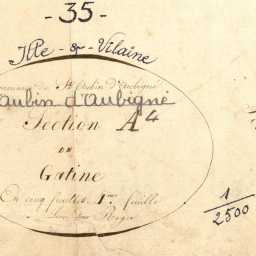 - 35 -
Ille - & - Vilaine
Commune de St Aubin d'Aubigné
aubin d'aubigné
Section A4
DE
Gatine
En cinq feuilles 1ère feuille
1
2500